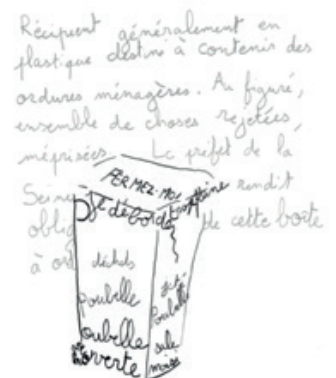 Récipient généralement en
plastique destiné à contenir des
ordures ménagères. Au figuré,
ensemble de choses rejetées,
méprisées. Le préfet de la
Seine rendit
oblig de cette boîte
à or
FERMEZ-MOI
Je déborde
déchets
Poubelle
Poubelle
ouverte
Poubelle
sale